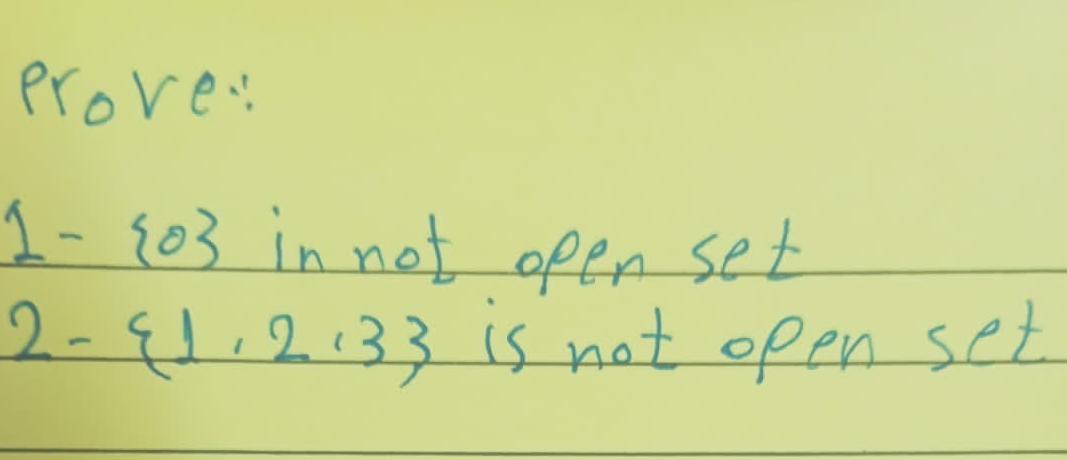 Prove:
1- {0} in not open set
2- {1,2,3} is not open set